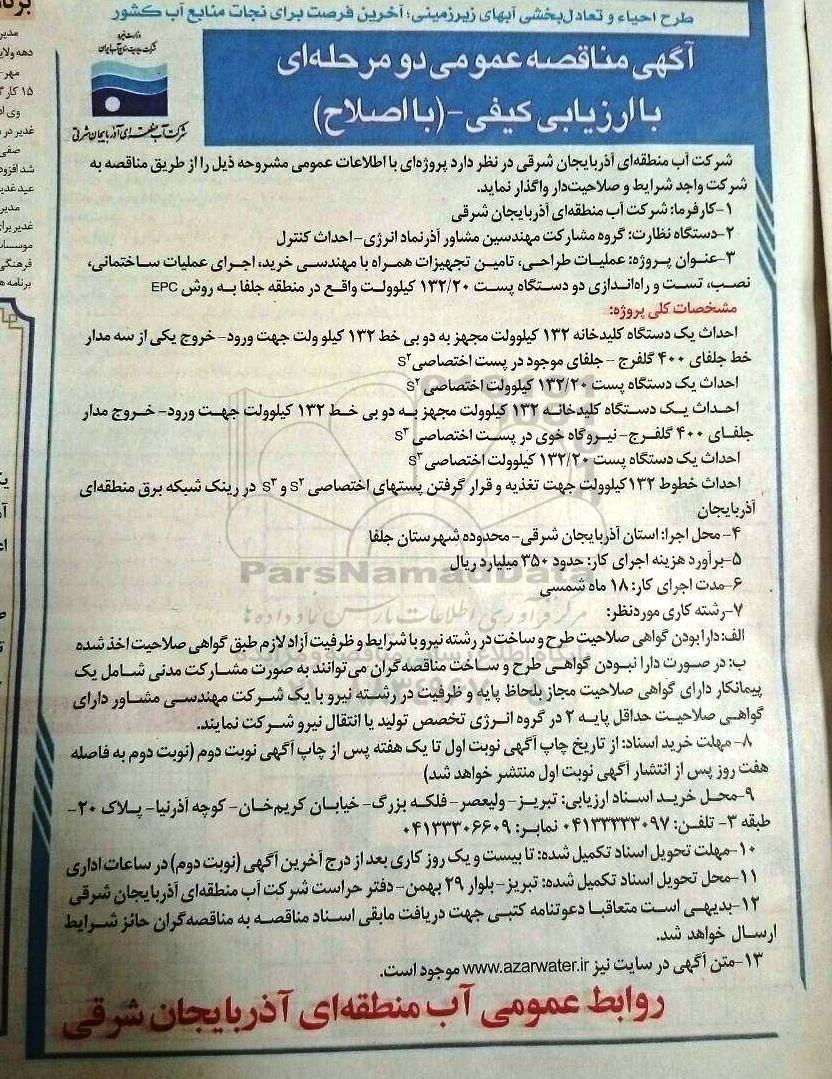 طرح احیاء و تعادل‌بخشی آبهای زیرزمینی؛ آخرین فرصت برای نجات منابع آب کشور
وزارت نیرو
شرکت مدیریت منابع آب ایران
شرکت آب منطقه‌ای آذربایجان شرقی
آگهی مناقصه عمومی دو مرحله‌ای
با ارزیابی کیفی-(با اصلاح)
شرکت آب منطقه‌ای آذربایجان شرقی در نظر دارد پروژه‌ای با اطلاعات عمومی مشروحه ذیل را از طریق مناقصه به
شرکت واجد شرایط و صلاحیت‌دار واگذار نماید.
۱-کارفرما: شرکت آب منطقه‌ای آذربایجان شرقی
۲-دستگاه نظارت: گروه مشارکت مهندسین مشاور آذرنماد انرژی-احداث کنترل
۳-عنوان پروژه: عملیات طراحی، تامین تجهیزات همراه با مهندسی خرید، اجرای عملیات ساختمانی،
نصب، تست و راه‌اندازی دو دستگاه پست ۱۳۲/۲۰ کیلوولت واقع در منطقه جلفا به روش EPC
مشخصات کلی پروژه:
احداث یک دستگاه کلیدخانه ۱۳۲ کیلوولت مجهز به دو بی خط ۱۳۲ کیلو ولت جهت ورود- خروج یکی از سه مدار
خط جلفای ۴۰۰ گلفرج - جلفای موجود در پست اختصاصی S۲
احداث یک دستگاه پست ۱۳۲/۲۰ کیلوولت اختصاصی S۲
احداث یک دستگاه کلیدخانه ۱۳۲ کیلوولت مجهز به دو بی خط ۱۳۲ کیلوولت جهت ورود- خروج مدار
جلفای ۴۰۰ گلفرج- نیروگاه خوی در پست اختصاصی S۳
احداث یک دستگاه پست ۱۳۲/۲۰ کیلوولت اختصاصی S۳
احداث خطوط ۱۳۲کیلوولت جهت تغذیه و قرار گرفتن پستهای اختصاصی S۲ و S۳ در رینک شبکه برق منطقه‌ای
آذربایجان
۴-محل اجرا: استان آذربایجان شرقی- محدوده شهرستان جلفا
۵-برآورد هزینه اجرای کار: حدود ۳۵۰ میلیارد ریال
ParsNamadData
۶-مدت اجرای کار: ۱۸ ماه شمسی
۷-رشته کاری موردنظر:
مرکز فرآوری اطلاعات پارس نماد داده‌ها
الف: دارا بودن گواهی صلاحیت طرح و ساخت در رشته نیرو با شرایط و ظرفیت آزاد لازم طبق گواهی صلاحیت اخذ شده
ب: در صورت دارا نبودن گواهی طرح و ساخت مناقصه‌گران می‌توانند به صورت مشارکت مدنی شامل یک
پیمانکار دارای گواهی صلاحیت مجاز بلحاظ پایه و ظرفیت در رشته نیرو با یک شرکت مهندسی مشاور دارای
گواهی صلاحیت حداقل پایه ۲ در گروه انرژی تخصص تولید یا انتقال نیرو شرکت نمایند.
۸-مهلت خرید اسناد: از تاریخ چاپ آگهی نوبت اول تا یک هفته پس از چاپ آگهی نوبت دوم (نوبت دوم به فاصله
هفت روز پس از انتشار آگهی نوبت اول منتشر خواهد شد)
۹-محل خرید اسناد ارزیابی: تبریز- ولیعصر- فلکه بزرگ- خیابان کریم‌خان- کوچه آذرنیا- پلاک ۲۰-
طبقه ۳- تلفن: ۰۴۱۳۳۳۳۳۰۹۷ نمابر: ۰۴۱۳۳۳۰۶۶۰۹
۱۰-مهلت تحویل اسناد تکمیل شده: تا بیست و یک روز کاری بعد از درج آخرین آگهی (نوبت دوم) در ساعات اداری
۱۱-محل تحویل اسناد تکمیل شده: تبریز- بلوار ۲۹ بهمن- دفتر حراست شرکت آب منطقه‌ای آذربایجان شرقی
۱۲-بدیهی است متعاقبا دعوتنامه کتبی جهت دریافت مابقی اسناد مناقصه به مناقصه‌گران حائز شرایط
ارسال خواهد شد.
۱۳-متن آگهی در سایت نیز www.azarwater.ir موجود است.
روابط عمومی آب منطقه‌ای آذربایجان شرقی